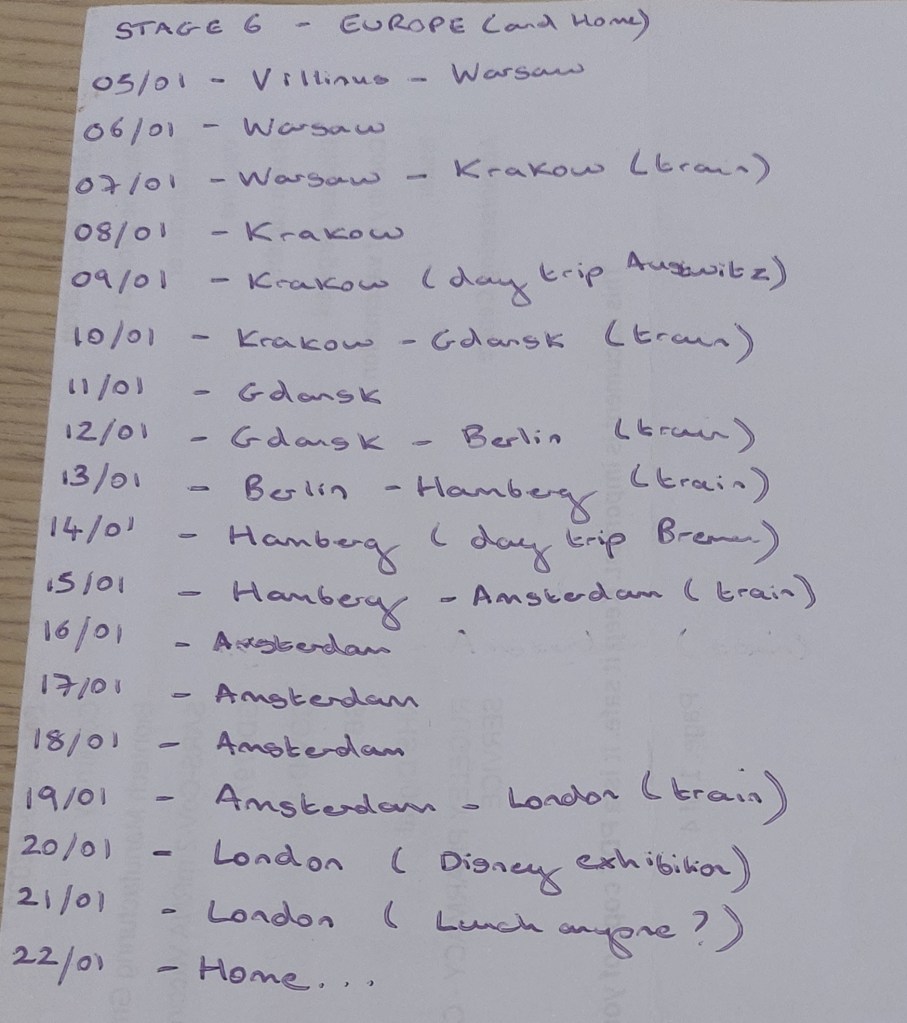 STAGE 6 - EUROPE (and Home)
05/01 - Villinus - Warsaw
06/01 - Warsaw
07/01 - Warsaw - Krakow (train)
08/01 - Krakow
09/01 - Krakow (day trip Auswitz)
10/01 - Krakow - Gdansk (train)
11/01 - Gdansk
12/01 - Gdansk - Berlin (train)
13/01 - Berlin - Hamberg (train)
14/01 - Hamberg (day trip Bremen)
15/01 - Hamberg - Amsterdam (train)
16/01 - Amsterdam
17/01 - Amsterdam
18/01 - Amsterdam
19/01 - Amsterdam - London (train)
20/01 - London (Disney exhibition)
21/01 - London (Lunch anyone?)
22/01 - Home...